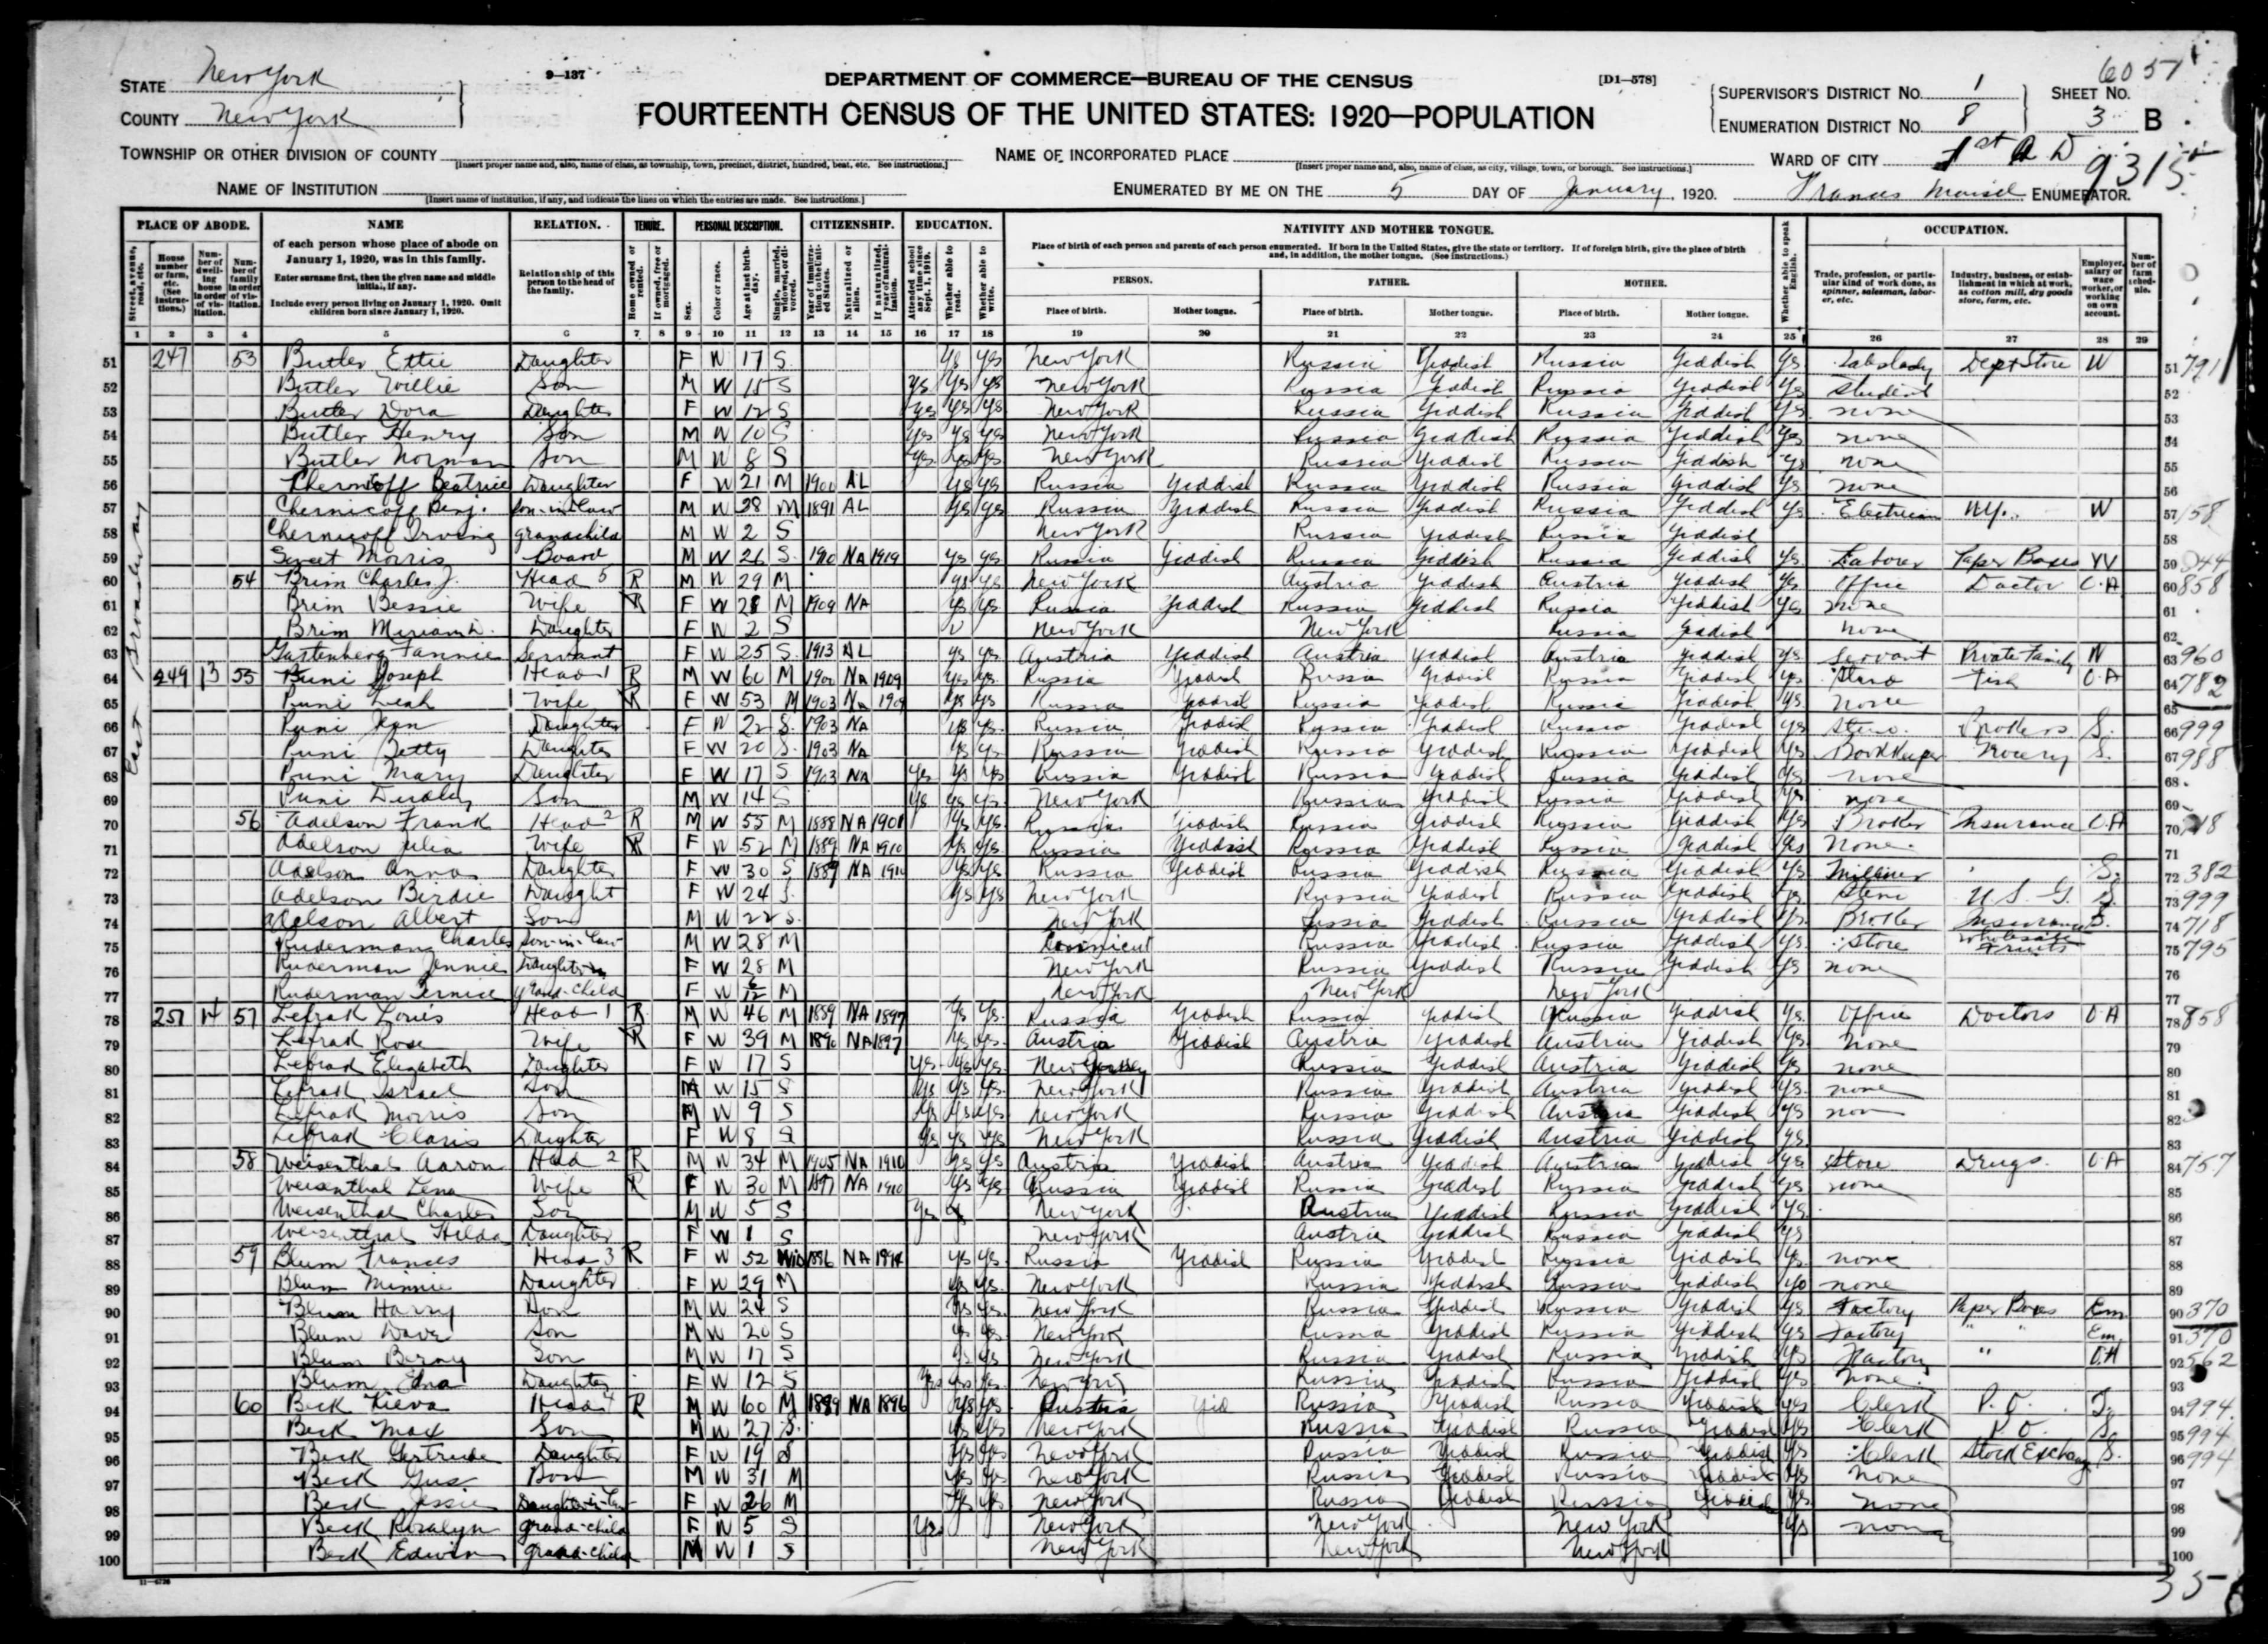 STATE New York
COUNTY New York
9—137
DEPARTMENT OF COMMERCE—BUREAU OF THE CENSUS
[D1—578]
FOURTEENTH CENSUS OF THE UNITED STATES: 1920—POPULATION
SUPERVISOR'S DISTRICT No. 1
ENUMERATION DISTRICT No. 8
6051
SHEET No.
3 B
TOWNSHIP OR OTHER DIVISION OF COUNTY
[Insert proper name and, also, name of class, as township, town, precinct, district, hundred, beat, etc. See instructions.]
NAME OF INCORPORATED PLACE
[Insert proper name and, also, name of class, as city, village, town, or borough. See instructions.]
WARD OF CITY 1st A D
9315
NAME OF INSTITUTION
[Insert name of institution, if any, and indicate the lines on which the entries are made. See instructions.]
ENUMERATED BY ME ON THE 5 DAY OF January, 1920. ENUMERATOR.
PLACE OF ABODE. NAME RELATION. TENURE. PERSONAL DESCRIPTION. CITIZENSHIP. EDUCATION. NATIVITY AND MOTHER TONGUE. OCCUPATION.
of each person whose place of abode on January 1, 1920, was in this family.
Enter surname first, then the given name and middle initial, if any.
Include every person living on January 1, 1920. Omit children born since January 1, 1920.
Relationship of this person to the head of the family.
Place of birth of each person and parents of each person enumerated. If born in the United States, give the state or territory. If of foreign birth, give the place of birth and, in addition, the mother tongue. (See instructions.)
PERSON. FATHER. MOTHER.
Place of birth. Mother tongue. Place of birth. Mother tongue. Place of birth. Mother tongue.
1 2 3 4 5 6 7 8 9 10 11 12 13 14 15 16 17 18 19 20 21 22 23 24 25 26 27 28 29
51 247 53 Butler Ettie Daughter F W 17 S Yes Yes New York Russia Yiddish Russia Yiddish Yes Saleslady Dept Store W 51 791
52 Butler Willie Son M W 15 S Yes Yes Yes New York Russia Yiddish Russia Yiddish Yes Student 52
53 Butler Dora Daughter F W 12 S Yes Yes Yes New York Russia Yiddish Russia Yiddish Yes none 53
54 Butler Henry Son M W 10 S Yes Yes Yes New York Russia Yiddish Russia Yiddish Yes none 54
55 Butler Norman Son M W 8 S Yes Yes Yes New York Russia Yiddish Russia Yiddish Yes none 55
56 Beatrice Daughter F W 21 M AL Yes Yes Russia Yiddish Russia Yiddish Russia Yiddish Yes none 56
57 Chernicoff Benj. Son-in-Law M W 28 M 1891 AL Yes Yes Russia Yiddish Russia Yiddish Russia Yiddish Yes N.Y. W 57 158
58 Chernicoff Irving grandchild M W 2 S New York Russia Yiddish Russia Yiddish 58
59 Sweet Morris Board M W 26 S 1910 NA 1919 Yes Yes Russia Yiddish Russia Yiddish Russia Yiddish Yes Laborer Paper Boxes W 59
60 54 Brim Charles J. Head 5 R M W 29 M Yes Yes New York Austria Yiddish Austria Yiddish Yes Office Doctor O.A 60 858
61 Brim Bessie Wife R F W 28 M 1909 NA Yes Yes Russia Yiddish Russia Yiddish Russia Yiddish Yes none 61
62 Brim Miriam D. Daughter F W 2 S New York New York Russia Yiddish none 62
63 Gartenberg Fannie Servant F W 25 S 1913 AL Yes Yes Austria Yiddish Austria Yiddish Austria Yiddish Yes Servant Private Family W 63 960
64 249 13 55 Joseph Head 1 R M W 60 M NA 1909 Yes Yes Russia Yiddish Russia Yiddish Russia Yiddish Yes Fish O.A 64 782
65 Leah Wife R F W 53 M 1903 Na 1909 Yes Yes Russia Yiddish Russia Yiddish Russia Yiddish Yes none 65
66 Daughter F W 22 S 1903 NA Yes Yes Russia Yiddish Russia Yiddish Russia Yiddish Yes Steno. Brokers S. 66 999
67 Betty Daughter F W 20 S 1903 NA Yes Yes Russia Yiddish Russia Yiddish Russia Yiddish Yes Bookkeeper S. 67 988
68 Mary Daughter F W 17 S 1903 NA Yes Yes Yes Russia Yiddish Russia Yiddish Russia Yiddish Yes none 68
69 Son M W 14 S Yes Yes Yes New York Russia Yiddish Russia Yiddish Yes none 69
70 56 Adelson Frank Head 2 R M W 55 M 1888 NA 1901 Yes Yes Russia Yiddish Russia Yiddish Russia Yiddish Yes Broker Insurance O.A 70 718
71 Adelson Julia Wife R F W 52 M 1889 NA 1910 Yes Yes Russia Yiddish Russia Yiddish Russia Yiddish Yes None 71
72 Adelson Anna Daughter F W 30 S 1889 NA Yes Yes Russia Yiddish Russia Yiddish Russia Yiddish Yes Milliner S. 72 382
73 Adelson Birdie Daught F W 24 S. Yes Yes New York Russia Yiddish Russia Yiddish Yes Steno U. S. G. S. 73 999
74 Adelson Albert Son M W 22 S. New York Russia Yiddish Russia Yiddish Yes Broker Insurance S. 74 718
75 Ruderman Charles Son-in-Law M W 28 M Russia Yiddish Russia Yiddish Yes Store Wholesale Fruits 75 795
76 Ruderman Jennie Daughter F W 28 M New York Russia Yiddish Russia Yiddish Yes none 76
77 Ruderman Bernice grand-child F W M New York New York New York 77
78 251 14 57 Lefrak Louis Head 1 R M W 46 M 1889 NA 1897 Yes Yes Russia Yiddish Russia Yiddish Russia Yiddish Yes Office Doctors O.A 78 858
79 Lefrak Rose Wife R F W 39 M 1890 NA 1897 Yes Yes Austria Yiddish Austria Yiddish Austria Yiddish Yes none 79
80 Lefrak Elizabeth Daughter F W 17 S Yes Yes Yes New Jersey Russia Yiddish Austria Yiddish Yes none 80
81 Lefrak Israel Son M W 15 S Yes Yes Yes New York Russia Yiddish Austria Yiddish Yes none 81
82 Lefrak Morris Son M W 9 S Yes Yes Yes New York Russia Yiddish Austria Yiddish Yes non 82
83 Lefrak Claris Daughter F W 8 S Yes Yes Yes New York Russia Yiddish Austria Yiddish Yes 83
84 58 Weisenthal Aaron Head 2 R M W 34 M 1905 NA 1910 Yes Yes Austria Yiddish Austria Yiddish Austria Yiddish Yes Store Drugs O.A 84 757
85 Weisenthal Lena Wife R F W 30 M 1897 NA 1910 Yes Yes Russia Yiddish Russia Yiddish Russia Yiddish Yes none 85
86 Weisenthal Charles Son M W 5 S Yes New York Austria Yiddish Russia Yiddish Yes 86
87 Weisenthal Hilda Daughter F W 1 S New York Austria Yiddish Russia Yiddish Yes 87
88 59 Blum Frances Head 3 R F W 52 Wid 1886 NA 1914 Yes Yes Russia Yiddish Russia Yiddish Russia Yiddish Yes none 88
89 Blum Minnie Daughter F W 29 M Yes Yes New York Russia Yiddish Russia Yiddish Yes none 89
90 Blum Harry Son M W 24 S Yes Yes New York Russia Yiddish Russia Yiddish Yes Factory Paper Boxes Em 90 370
91 Blum Dave Son M W 20 S Yes Yes New York Russia Yiddish Russia Yiddish Yes Factory " " Em 91 370
92 Blum Son M W 17 S Yes Yes New York Russia Yiddish Russia Yiddish Yes Factory " O.A 92 562
93 Blum Edna Daughter F W 12 S Yes Yes Yes New York Russia Yiddish Russia Yiddish Yes None 93
94 60 Beck Head 4 R M W 60 M 1889 NA 1896 Yes Yes Yid Russia Yiddish Russia Yiddish Yes Clerk P. O. 94 994
95 Beck Max Son M W 27 S. Yes Yes New York Russia Yiddish Russia Yiddish Yes Clerk P. O. S 95 994
96 Beck Gertrude Daughter F W 19 S Yes Yes New York Russia Yiddish Russia Yiddish Yes Clerk Stock Exchang S. 96 994
97 Beck Gus Son M W 31 M Yes Yes New York Russia Yiddish Russia Yiddish Yes None 97
98 Beck Jessie Daughter-in-Law F W 26 M Yes Yes New York Russia Yiddish Russia Yiddish Yes none 98
99 Beck Rosalyn grand-child F W 5 S Yes New York New York New York Yes none 99
100 Beck Edwin grand-child M W 1 S New York New York New York 100
35